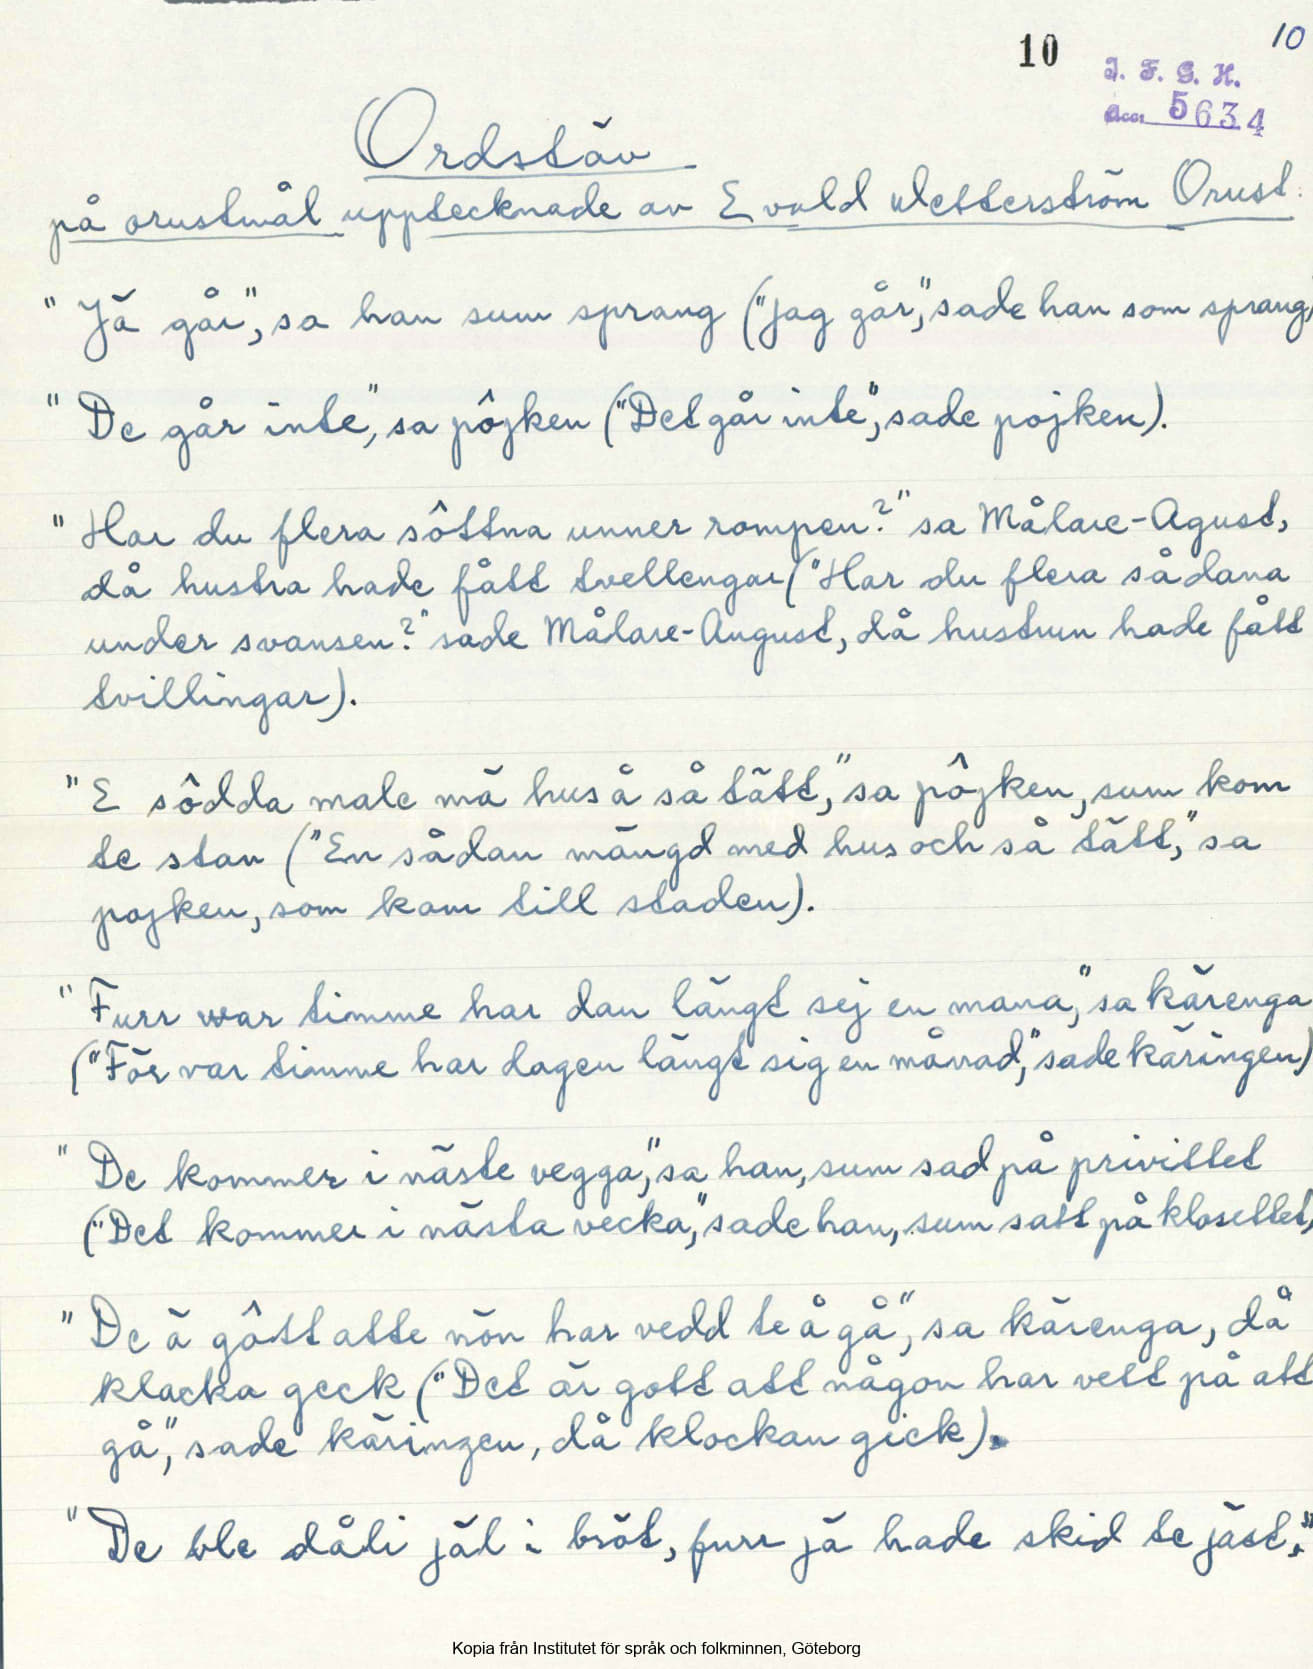 10
10
I. F. G. H.
Acc. 5634
Ordstäv
på orustmål upptecknade av Evald Wetterström Orust.
"Jä går", sa han sum sprang ("Jag går", sade han som sprang)
"De går inte", sa pôjken ("Det går inte", sade pojken).
"Har du flera sôttna unner rompen?" sa Målare-Agust,
då hustra hade fått tvellengar ("Har du flera sådana
under svansen?" sade Målare-August, då hustrun hade fått
tvillingar).
"E sôdda male mä hus å så tätt," sa pôjken, sum kom
te stan ("En sådan mängd med hus och så tätt," sa
pojken, som kom till staden).
"Furr war timme har dan längt sej en mana," sa kärenga
("För var timme har dagen längt sig en månad," sade käringen)
"De kommer i näste vegga," sa han, sum sad på privittet
("Det kommer i nästa vecka," sade han, sum satt på klosettet)
"De ä gôtt atte nön har vedd te å gå", sa kärenga, då
klacka geck ("Det är gott att någon har vett på att
gå", sade käringen, då klockan gick).
"De ble dåli jäl i bröt, furr jä hade skid te jäst,"
Kopia från Institutet för språk och folkminnen, Göteborg